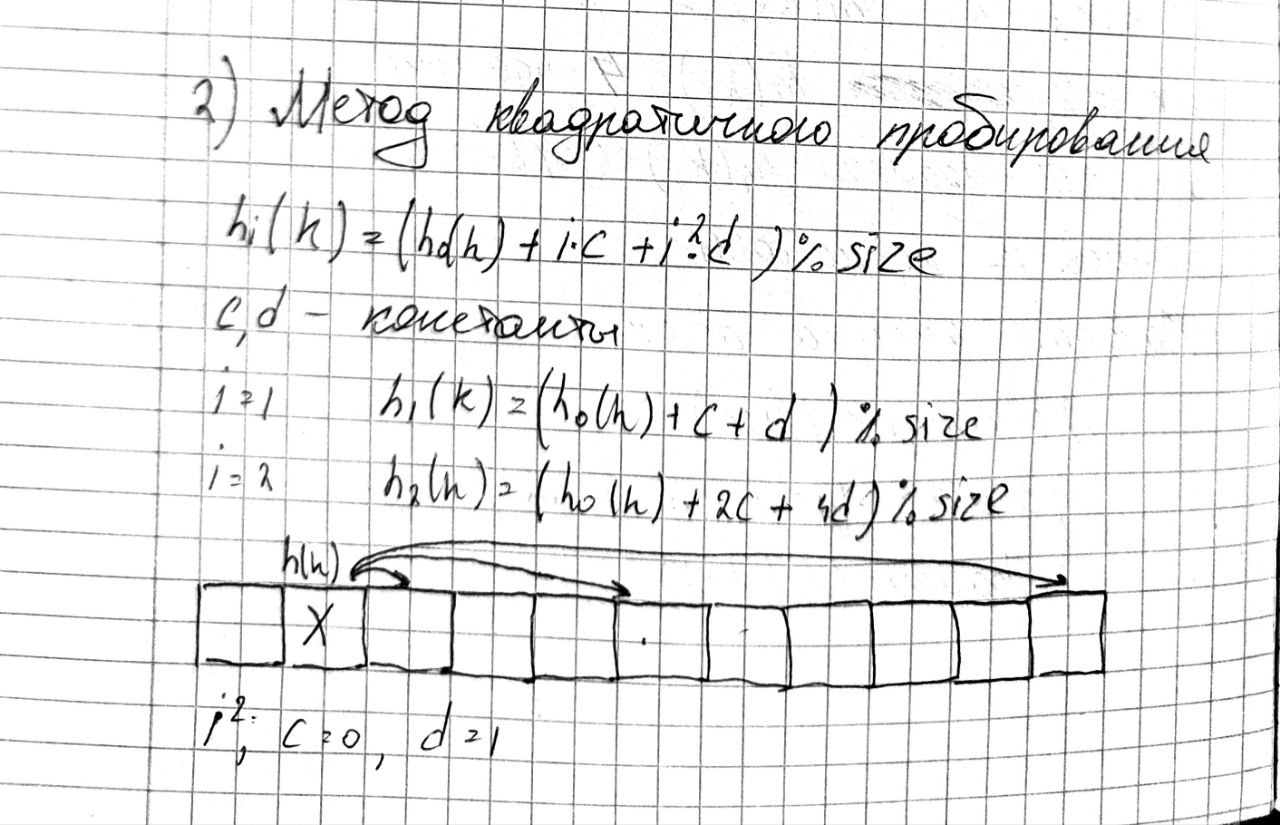 2) Метод квадратичного пробирования
hi(k) = (h0(k) + i·c + i²·d) % size
c,d – константы
i=1 h1(k) = (h0(k) + c + d) % size
i=2 h2(k) = (h0(k) + 2c + 4d) % size
h(k)
X
i²; c=0, d=1